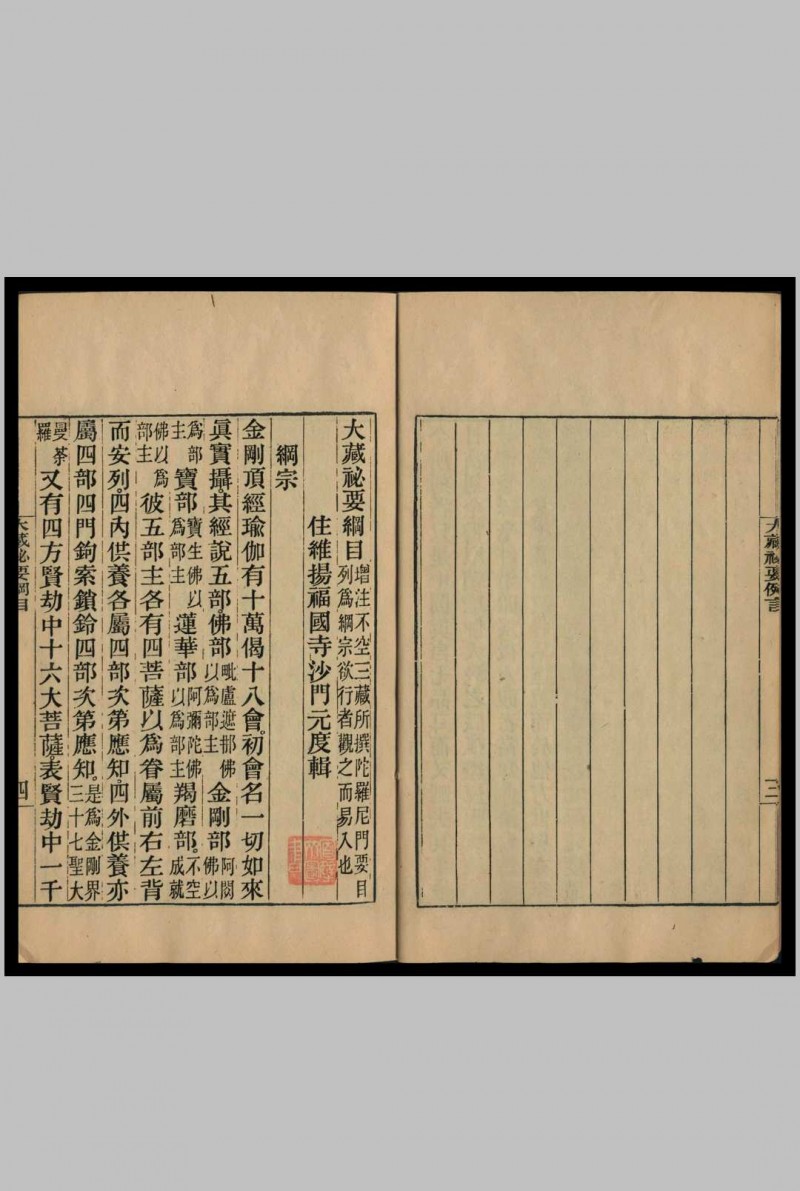 大藏祕要例言
三
大藏祕要綱目增注不空三藏所撰陀羅尼門要目列爲綱宗欲行者觀之而易入也
住維揚福國寺沙門元度輯
綱宗
金剛頂經瑜伽有十萬偈十八會。初會名一切如來
眞實攝。其經說五部。佛部毗盧遮那佛以爲部主金剛部阿閦佛以
爲部主寶部寶生佛以爲部主蓮華部阿彌陀佛以爲部主羯磨部。不空成就
佛以爲部主彼五部主各有四菩薩以爲眷屬前右左背
而安列。四內供養各屬四部次第應知。四外供養亦
屬四部四門鉤索鎖鈴四部次第應知。是爲金剛界三十七聖大
曼荼羅又有四方賢劫中十六大菩薩表賢劫中一千
大藏祕要綱目
四